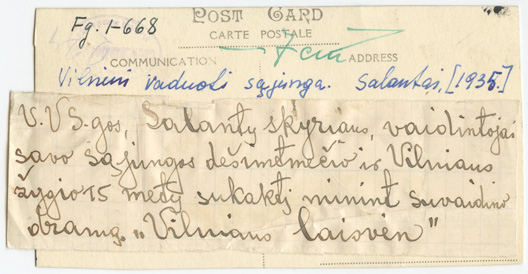 Fg. 1-668
POST CARD
CARTE POSTALE
COMMUNICATION
ADDRESS
Vilniui vaduoti sąjunga. Salantai, [1935.]
V.V S-gos, Salantų skyriaus, vaidintojai
savo Sąjungos dešimtmečio ir Vilniaus
žygio 15 metų sukaktį minint suvaidino
dramą „Vilniaus laisvėn"